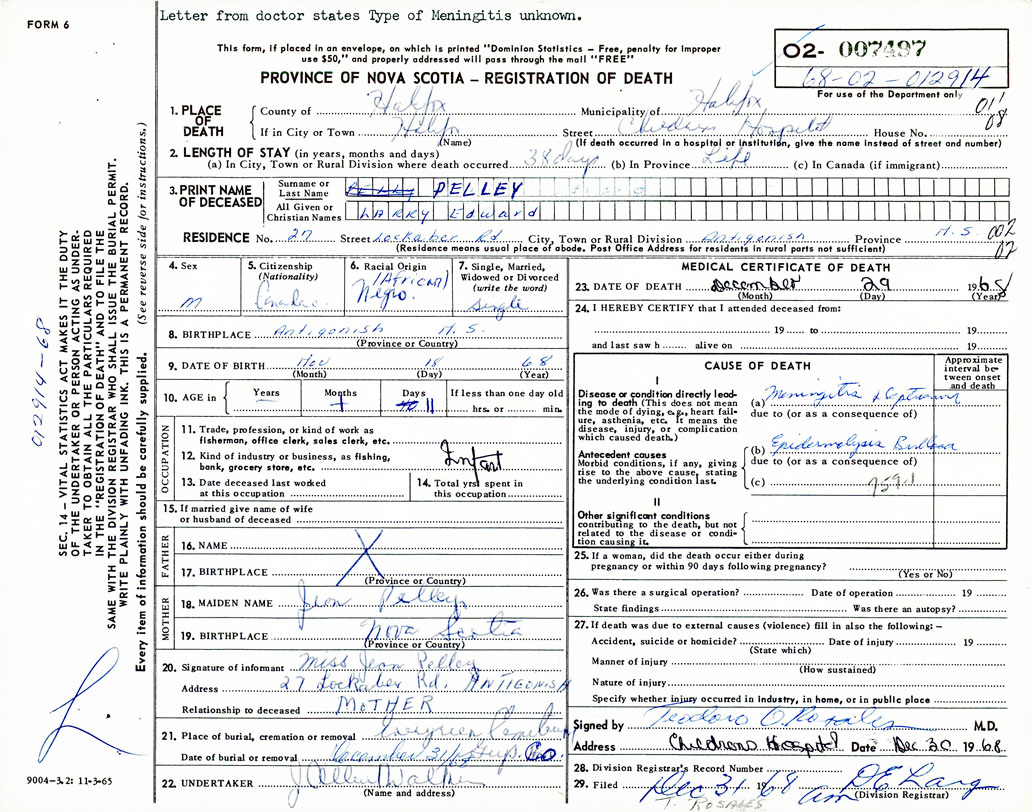 FORM 6
Letter from doctor states Type of Meningitis unknown.
This form, if placed in an envelope, on which is printed "Dominion Statistics – Free, penalty for improper
use $50," and properly addressed will pass through the mail "FREE"
PROVINCE OF NOVA SCOTIA – REGISTRATION OF DEATH
02- 007497
68-02-012914
For use of the Department only
011
08
1. PLACE OF DEATH
County of Halifax Municipality of Halifax
If in City or Town Halifax Street Children Hospital House No.
(Name) (If death occurred in a hospital or institution, give the name instead of street and number)
2. LENGTH OF STAY (in years, months and days)
(a) In City, Town or Rural Division where death occurred 38 days (b) In Province Life (c) In Canada (if immigrant)
3. PRINT NAME OF DECEASED
Surname or Last Name PELLEY PELLEY
All Given or Christian Names LARRY Edward
RESIDENCE No. 27 Street Lockaber Rd City, Town or Rural Division Antigonish Province N.S. 002
(Residence means usual place of abode. Post Office Address for residents in rural parts not sufficient) 02
4. Sex
M
5. Citizenship
(Nationality)
6. Racial Origin
(African)
Negro.
7. Single, Married,
Widowed or Divorced
(write the word)
Single
8. BIRTHPLACE Antigonish N.S.
(Province or Country)
9. DATE OF BIRTH Nov 18 68
(Month) (Day) (Year)
10. AGE in Years Months Days If less than one day old
1 11 hrs. or min.
OCCUPATION
11. Trade, profession, or kind of work as
fisherman, office clerk, sales clerk, etc.
12. Kind of industry or business, as fishing,
bank, grocery store, etc. Infant
13. Date deceased last worked
at this occupation
14. Total yrs. spent in
this occupation
15. If married give name of wife
or husband of deceased
FATHER
16. NAME
17. BIRTHPLACE
(Province or Country)
MOTHER
18. MAIDEN NAME Jean Pelley
19. BIRTHPLACE Nova Scotia
(Province or Country)
20. Signature of informant Miss Jean Pelley
Address 27 Lockaber Rd. ANTIGONISH
Relationship to deceased MOTHER
21. Place of burial, cremation or removal
Date of burial or removal December 31/68
22. UNDERTAKER
(Name and address)
MEDICAL CERTIFICATE OF DEATH
23. DATE OF DEATH December 29 1968
(Month) (Day) (Year)
24. I HEREBY CERTIFY that I attended deceased from:
19 to 19
and last saw h alive on 19
CAUSE OF DEATH
Approximate interval between onset and death
I
Disease or condition directly leading to death (This does not mean the mode of dying, e.g., heart failure, asthenia, etc. It means the disease, injury, or complication which caused death.)
(a) Meningitis &
due to (or as a consequence of)
(b) Epidermolysis Bullosa
due to (or as a consequence of)
(c)
Antecedent causes
Morbid conditions, if any, giving rise to the above cause, stating the underlying condition last.
II
Other significant conditions
contributing to the death, but not related to the disease or condition causing it.
25. If a woman, did the death occur either during
pregnancy or within 90 days following pregnancy?
(Yes or No)
26. Was there a surgical operation? Date of operation 19
State findings Was there an autopsy?
27. If death was due to external causes (violence) fill in also the following: –
Accident, suicide or homicide? Date of injury 19
(State which)
Manner of injury
(How sustained)
Nature of injury
Specify whether injury occurred in Industry, in home, or in public place
Signed by Teodoro O. Rosales M.D.
Address Childrens Hospital Date Dec. 30 1968
28. Division Registrar's Record Number
29. Filed Dec 31 1968 D E Lang
(Division Registrar)
T. ROSALES
SEC. 14 – VITAL STATISTICS ACT MAKES IT THE DUTY
OF THE UNDERTAKER OR PERSON ACTING AS UNDER-
TAKER TO OBTAIN ALL THE PARTICULARS REQUIRED
IN THE "REGISTRATION OF DEATH" AND TO FILE THE
SAME WITH THE DIVISION REGISTRAR WHO SHALL ISSUE THE BURIAL PERMIT.
WRITE PLAINLY WITH UNFADING INK. THIS IS A PERMANENT RECORD.
Every item of information should be carefully supplied. (See reverse side for instructions.)
012914-68
9004-3.2: 11-3-65